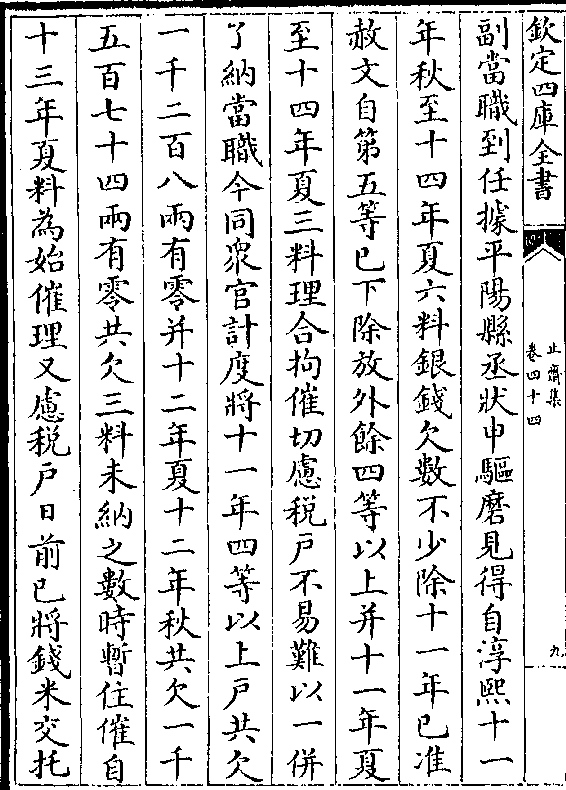 欽定四庫全書
止齋集
卷四十四
九
副當職到任據平陽縣丞狀申驅磨見得自淳熙十一
年秋至十四年夏六料銀錢欠數不少除十一年已准
赦文自第五等已下除放外餘四等以上并十一年夏
至十四年夏三料理合拘催切慮税戸不易難以一併
了納當職今同衆官計度將十一年四等以上戸共欠
一千二百八兩有零并十二年夏十二年秋共欠一千
五百七十四兩有零共欠三料未納之數時暫住催自
十三年夏料為始催理又慮税戸日前已將錢米交托